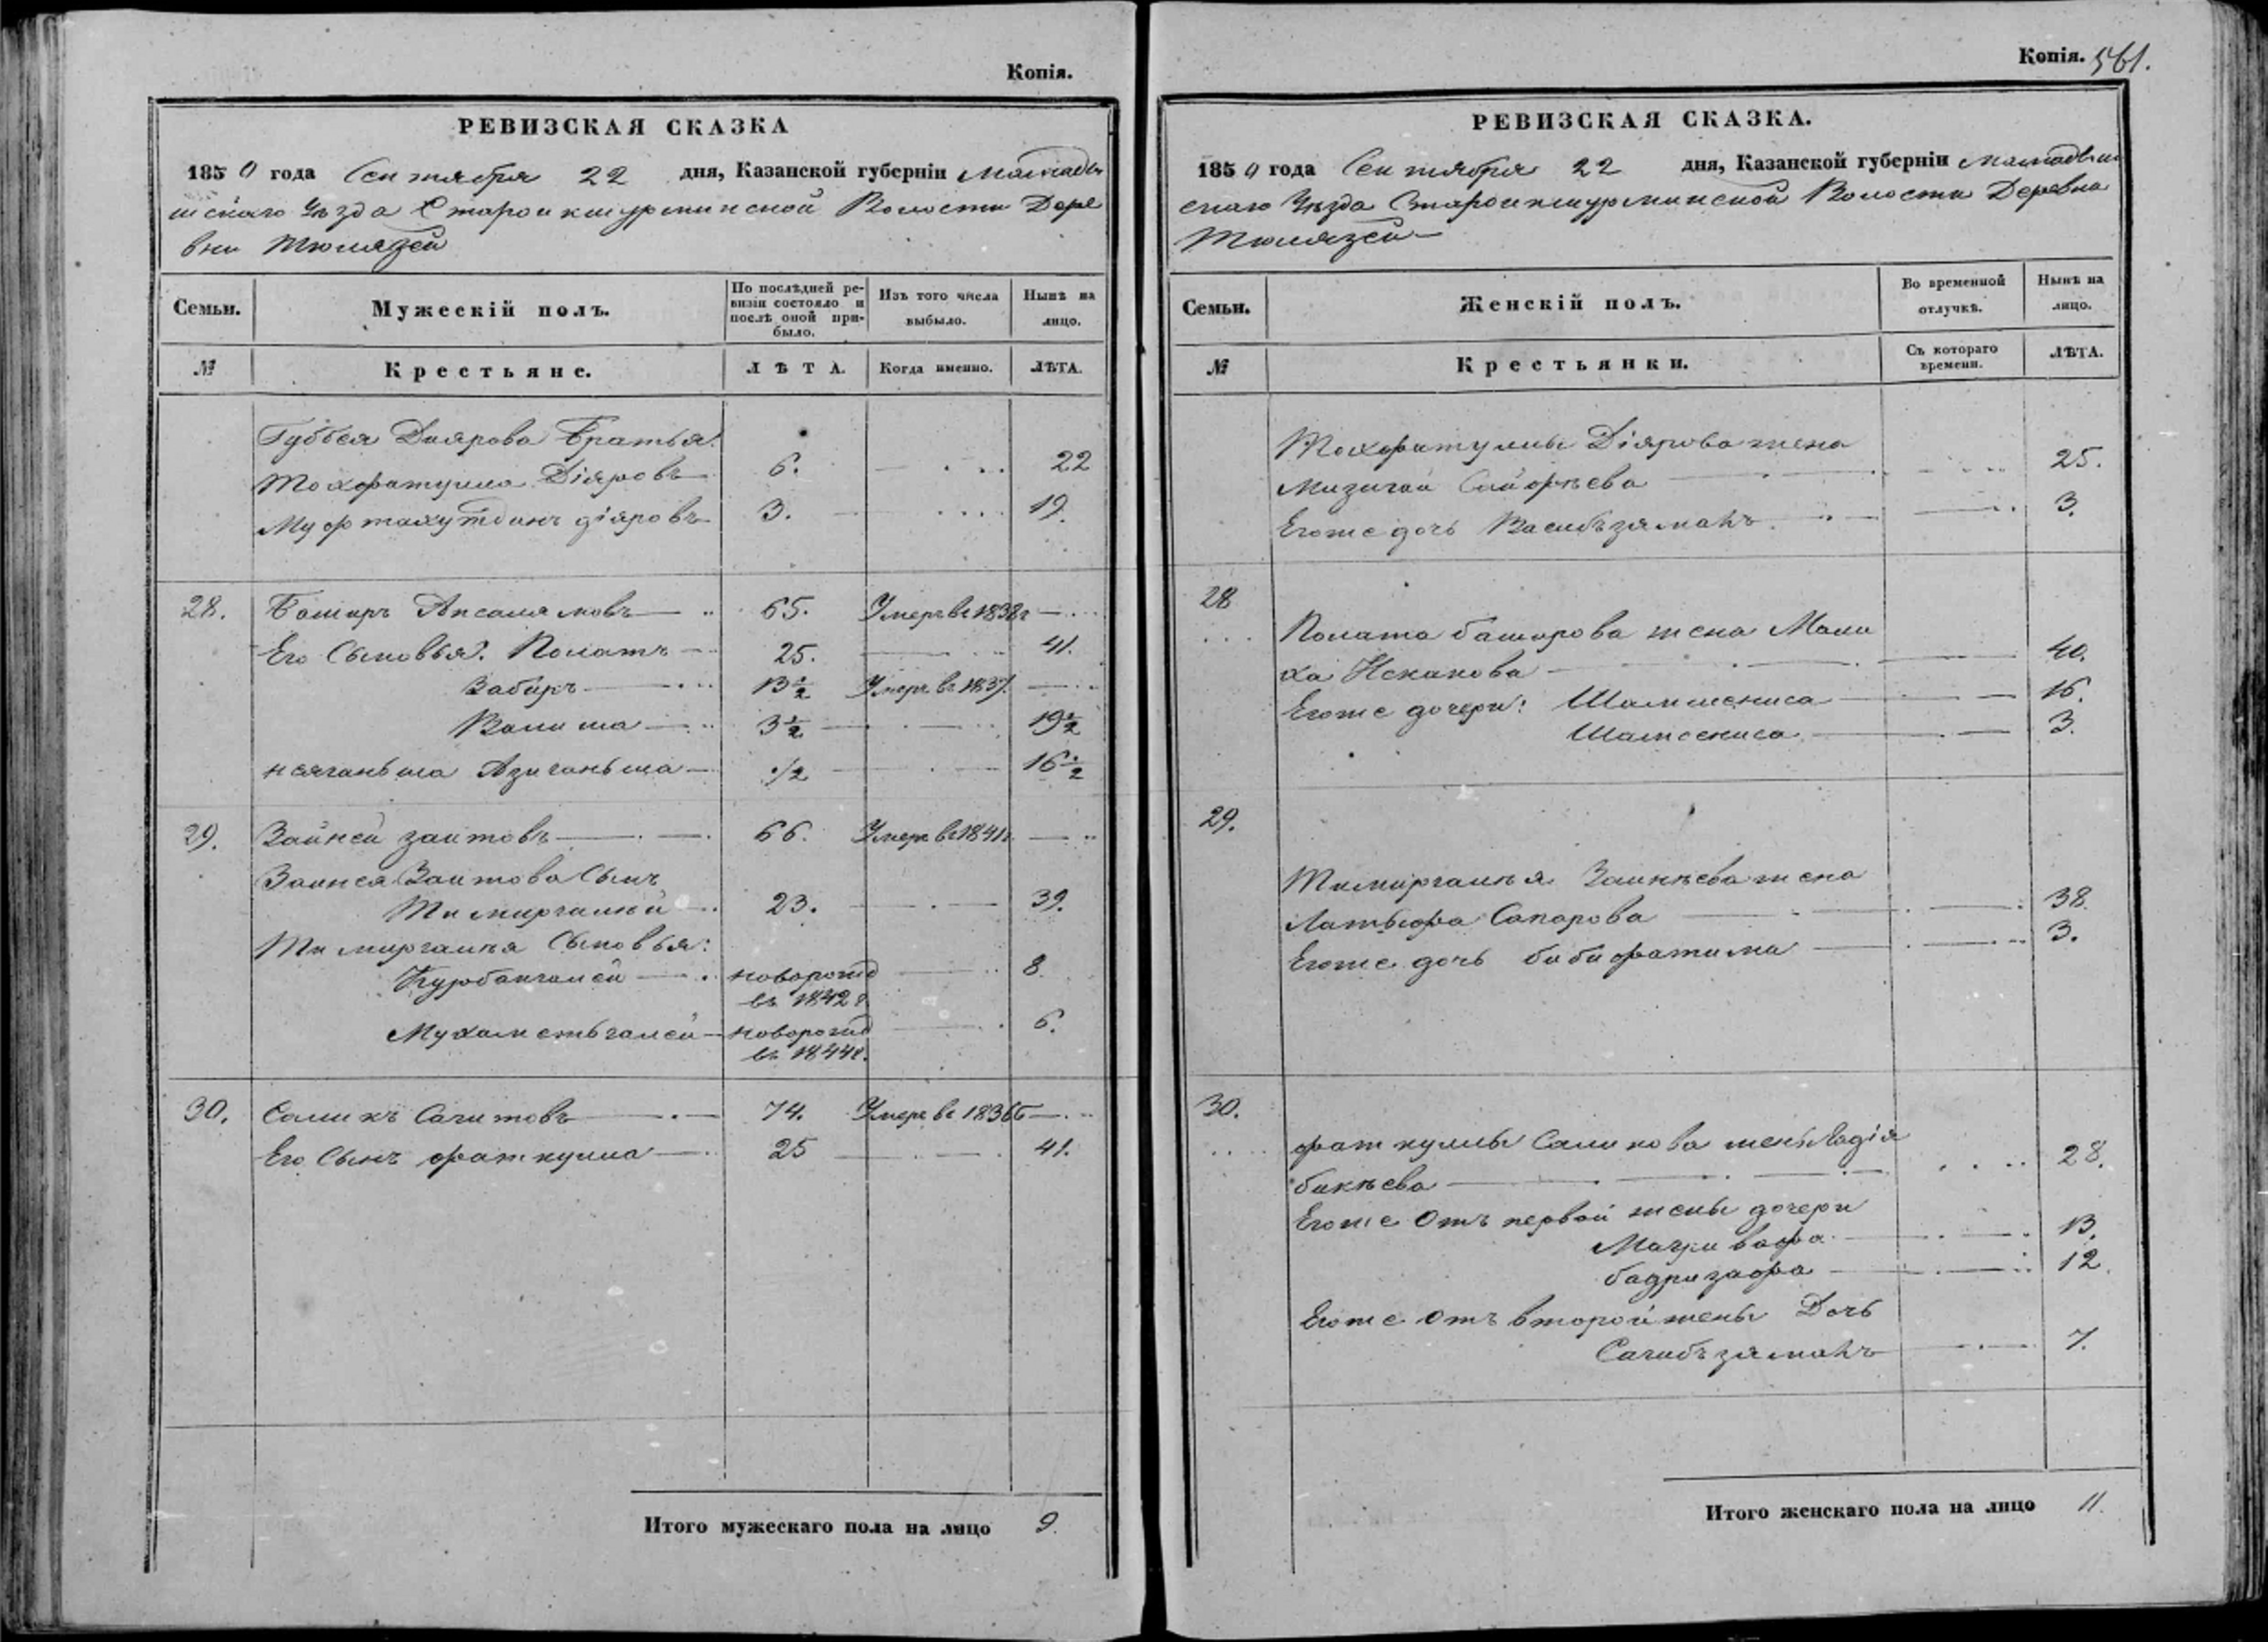 Копія.
РЕВИЗСКАЯ СКАЗКА
1850 года Сентября 22 дня, Казанской губерніи Мамады
шскаго Уѣзда Староикшурминской Волости Дере
вни Тюлязей
Семьи. Мужескій полъ. По послѣдней ревизіи состояло и послѣ оной прибыло. Изъ того числа выбыло. Нынѣ на лицо.
№ Крестьяне. ЛѢТА. Когда именно. ЛѢТА.
Губбея Диярова Братья:
Тохфатулла Діяровъ 6. 22
Муфтахутдинъ діяровъ 3. 19.
28. Баширъ Апсалямовъ 65. Умеръ въ 1838г
Его Сыновья: Полатъ 25. 41.
Забиръ 13½ Умеръ въ 1837.
Валиша 3½ 19½
Азиганьша ½ 16½
29. Зайней заитовъ 66. Умеръ въ 1841г.
Заинея Заитова Сынъ
Тимиргалий 23. 39.
Тимиргалея Сыновья:
Курбангалей новорожд 8.
въ 1842г
Мухаметьгалей новорожд 6.
въ 1844г.
30. Саликъ Сагитовъ 74. Умеръ въ 1836
Его Сынъ фаткулла 25 41.
Итого мужескаго пола на лицо 9.
Копія. 561.
РЕВИЗСКАЯ СКАЗКА.
1850 года Сентября 22 дня, Казанской губерніи Мамадыш
скаго Уѣзда Староикшурминской Волости Деревни
Тюлязей
Семьи. Женскій полъ. Во временной отлучкѣ. Нынѣ на лицо.
№ Крестьянки. Съ котораго времени. ЛѢТА.
Тохфатуллы Діярова жена
Мизигай Сайфѣева 25.
Егоже дочь Васибъзяманъ 3.
28
Полата баширова жена Мали
ха Искакова 40.
Егоже дочери: Шамшениса 16.
Шамсениса 3.
29.
Тимиргалея Заинѣева жена
Латыфа Сапарова 38.
Егоже дочь бибифатима 3.
30.
фаткуллы Саликова жены Гадія
бикѣева 28.
Егоже Отъ первой жены дочери
Магривафа 13.
бадризафа 12.
Егоже Отъ второй жены Дочь
Сагибъзяманъ 7.
Итого женскаго пола на лицо 11.